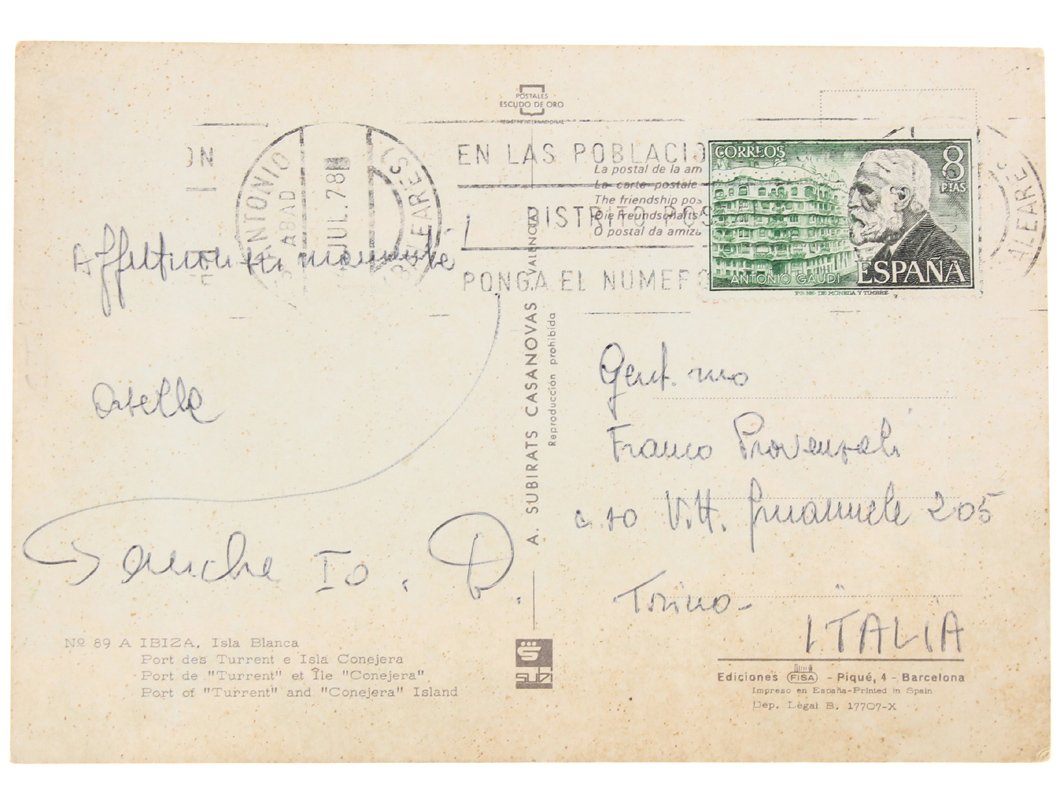 POSTALES
ESCUDO DE ORO
REGISTRO INTERNACIONAL
ANTONIO
ABAD
JUL. 78
BALEARES
EN LAS POBLACIO
DISTRITO POS
PONGA EL NUMERO
La postal de la am
La carte postale
The friendship pos
Die Freundschafts
O postal da amiza
CORREOS
8
PTAS
ANTONIO GAUDI
ESPAÑA
F·N·M·T· DE MONEDA Y TIMBRE
Ornella
Panche Io. D.
Gent.mo
Franco Provenzali
c.so Vitt. Emanuele 205
Torino-
ITALIA
A. SUBIRATS CASANOVAS (VALENCIA)
Reproducción prohibida
Nº 89 A IBIZA, Isla Blanca
Port des Turrent e Isla Conejera
Port de "Turrent" et Île "Conejera"
Port of "Turrent" and "Conejera" Island
subi
Ediciones FISA - Piqué, 4 - Barcelona
Impreso en España-Printed in Spain
Dep. Légal B. 17707-X